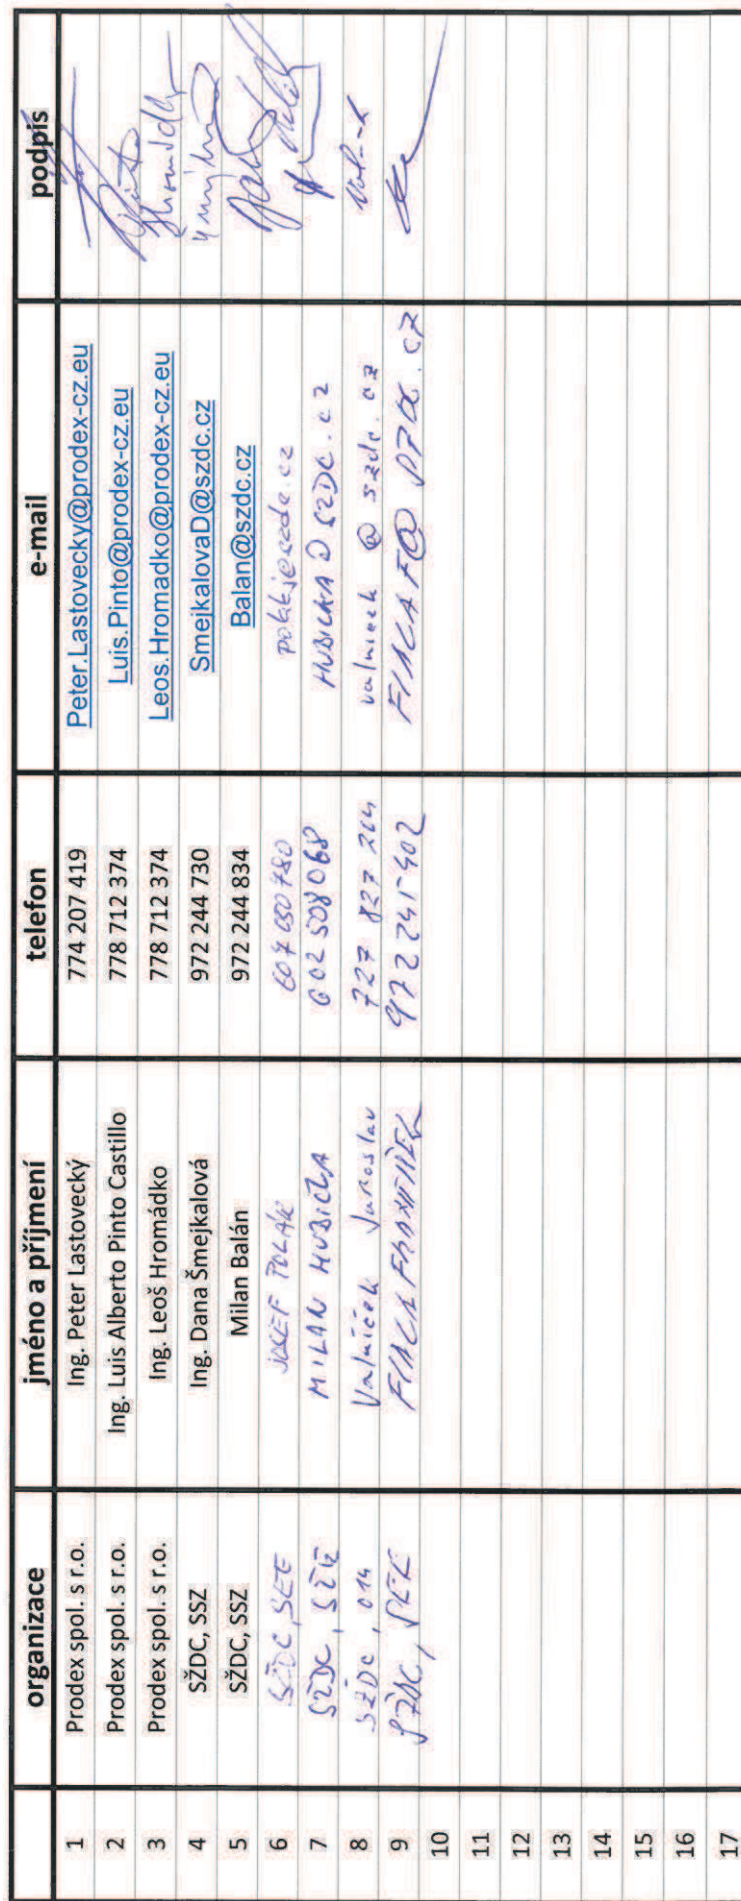 organizace jméno a příjmení telefon e-mail podpis
1 Prodex spol. s r.o. Ing. Peter Lastovecký 774 207 419 Peter.Lastovecky@prodex-cz.eu
2 Prodex spol. s r.o. Ing. Luis Alberto Pinto Castillo 778 712 374 Luis.Pinto@prodex-cz.eu
3 Prodex spol. s r.o. Ing. Leoš Hromádko 778 712 374 Leos.Hromadko@prodex-cz.eu
4 SŽDC, SSZ Ing. Dana Šmejkalová 972 244 730 SmejkalovaD@szdc.cz
5 SŽDC, SSZ Milan Balán 972 244 834 Balan@szdc.cz
6 SŽDC, SEE JOSEF POLÁK 607 050 780
7 SŽDC, MILAN HUBIČKA 602 508 068
8 SŽDC, 014 Valníček Jaroslav 727 827 204 valnicek @ szdc. cz
9 SŽDC, SEE FIALA FRANTIŠEK 972 245 402
10
11
12
13
14
15
16
17